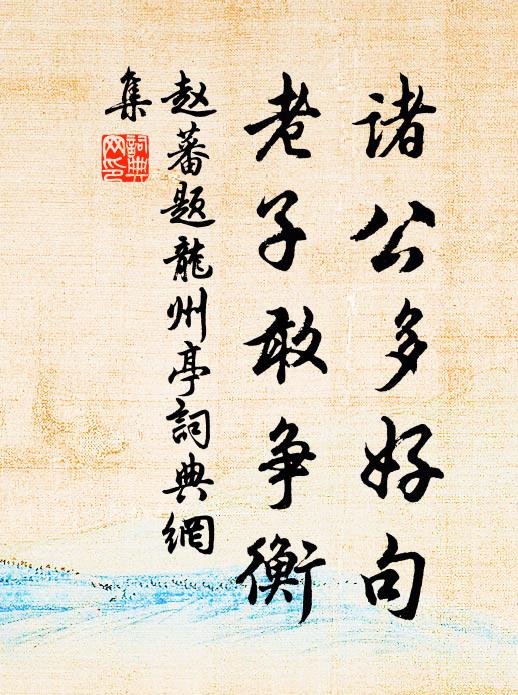 诸公多好句
老子敢争衡
赵蕃题龍州亭詞典網
集
詞典
网印